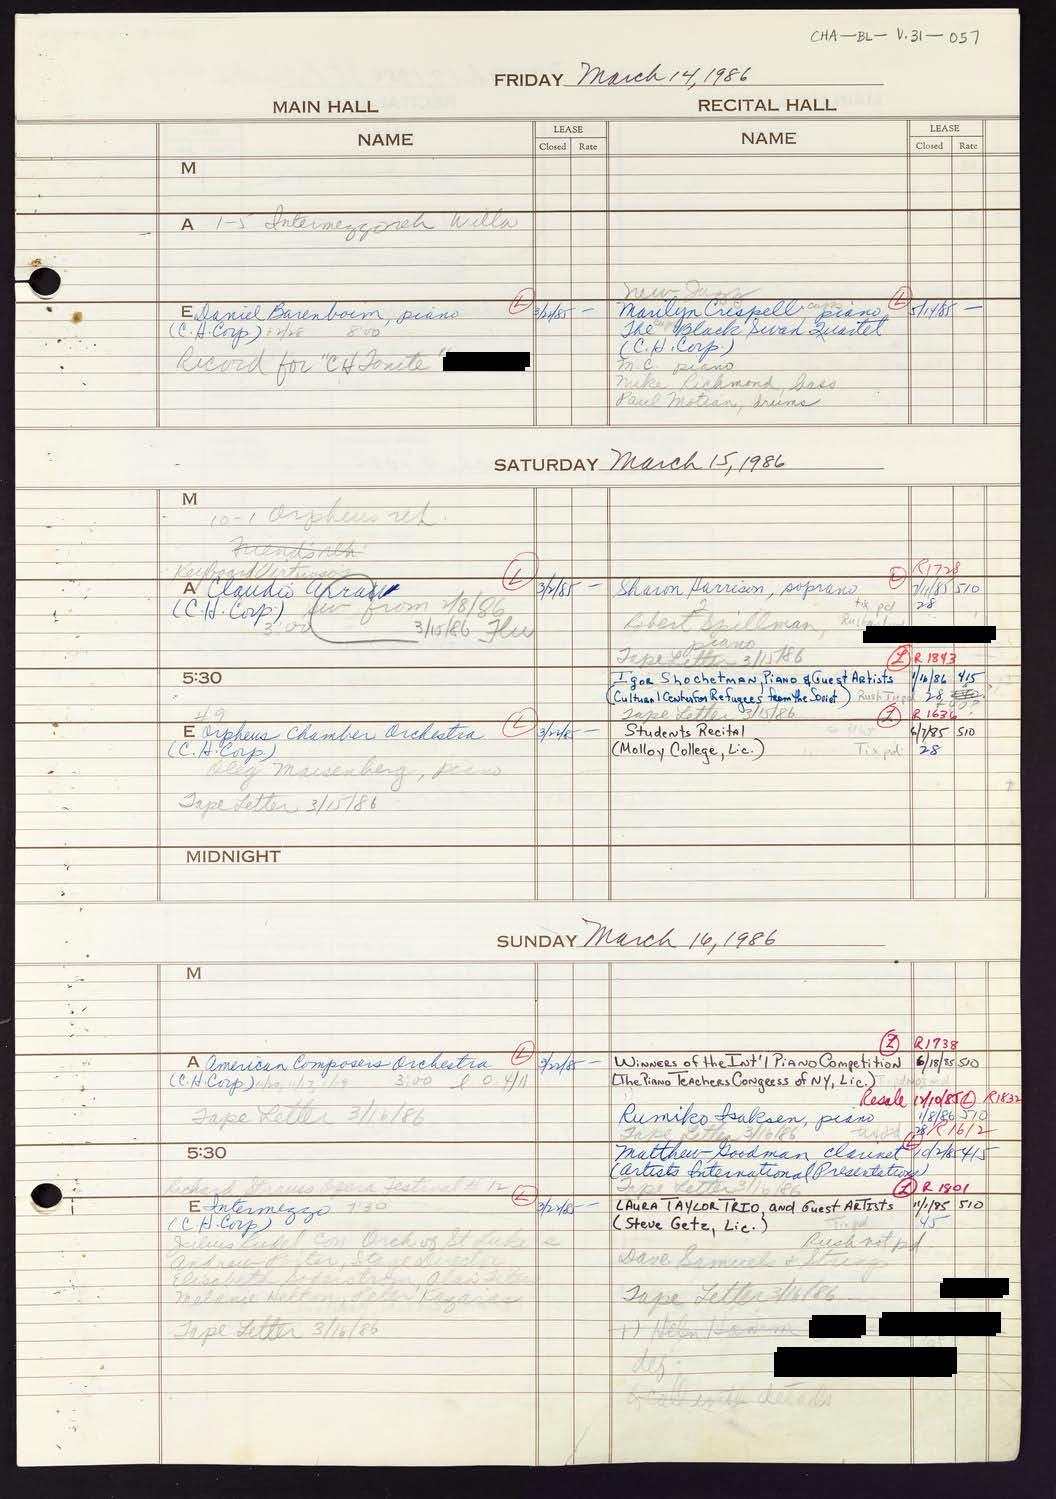 CHA-BL- V.31-057
FRIDAY March 14, 1986
MAIN HALL
RECITAL HALL
NAME
LEASE
Closed Rate
NAME
LEASE
Closed Rate
M
A 1-5 Intermezzo reh Willa
E Daniel Barenboim, piano L 3/22/85 —
(C.H. Corp) 8:00
Record for "CH Tonite"
New Jazz
Marilyn Crispell, piano L 5/17/85 —
The Black Swan Quartet
(C.H. Corp.)
M.C. piano
Mike Richmond, bass
Paul Motian, drums
SATURDAY March 15, 1986
M
10-1 Orpheus reh.
Friends reh
Keyboard Virtuosos
A Claudio Arrau L 3/2/85 —
(C.H. Corp) from 2/8/86
3:00 3/15/86 Flu
R1728
Sharon Harrison, soprano L 7/11/85 510
tix pd 28
Robert Spillman,
piano
Tape Letter 3/15/86
5:30
L R 1843
Igor Shochetman, Piano & Guest Artists 1/16/86 415
(Cultural Center for Refugees from the Soviet) 28
Tape Letter 3/15/86 L R 1636
E Orpheus Chamber Orchestra L 3/22/85 —
(C.H. Corp)
Oleg Maisenberg, piano
Tape Letter 3/15/86
Students Recital 6/7/85 510
(Molloy College, Lic.) Tix pd 28
MIDNIGHT
SUNDAY March 16, 1986
M
A American Composers Orchestra L 3/22/85 —
(C.H. Corp) 3:00
Tape Letter 3/16/86
L R1738
Winners of the Int'l Piano Competition 6/18/85 510
(The Piano Teachers Congress of NY, Lic.)
Resale 12/10/85 L R1832
Rumiko Isaksen, piano 1/8/86 510
Tape Letter 3/16/86 28 R1612
5:30
Matthew Goodman, clarinet L 10/2/85 415
(Artists International Presentation)
Tape Letter 3/16/86
Richard Strauss Opera Festival # 12
E Intermezzo 7:30 L 3/22/85 —
(C.H. Corp)
Julius Rudel Con Orch of St Luke's
Tape Letter 3/16/86
L R 1801
Laura Taylor Trio, and Guest Artists 11/1/85 510
(Steve Getz, Lic.) 45
Rush not pd.
Dave Samuels & Strings
Tape Letter 3/16/86